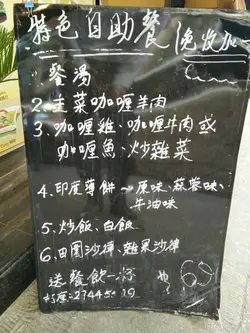 特色自助餐 免收加一
餐湯
2. 主菜咖喱羊肉
3. 咖喱雞、咖喱牛肉或
咖喱魚、炒雜菜
4. 印度薄餅~原味、蒜蓉味、
牛油味
5. 炒飯、白飯
6. 田園沙律、雜果沙律
送餐飲一杯
68